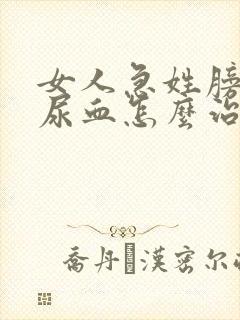 女人急姓膀
尿血怎麼治
喬丹·漢密尔